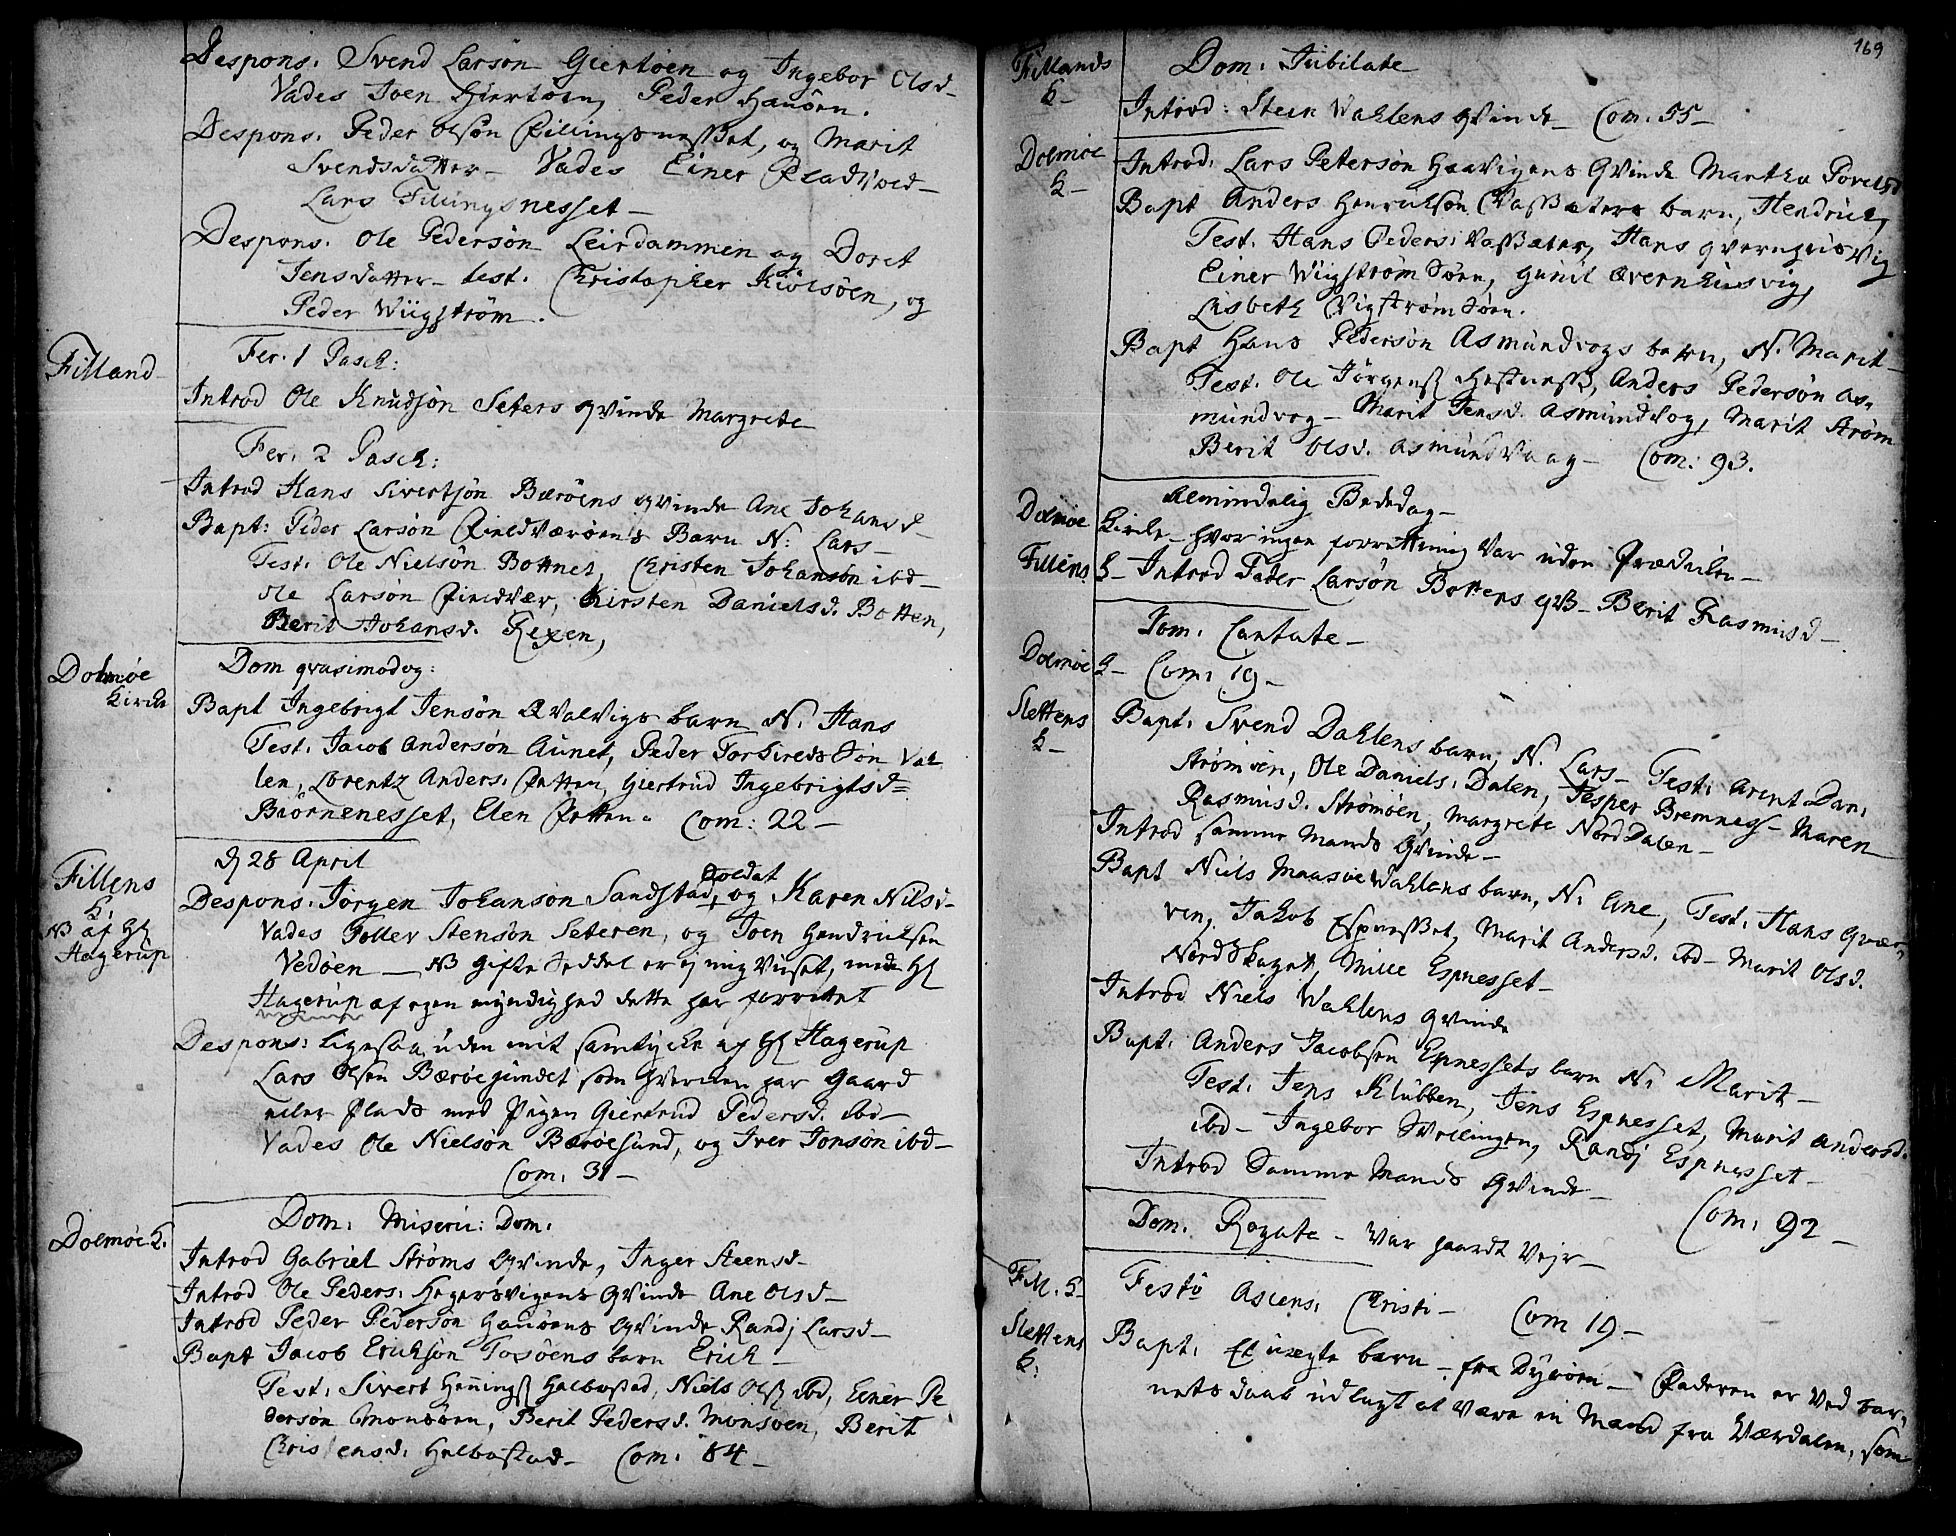 Despons. Svend Larsøn Giertøen og Ingebor Olsd-
Vades Joen Hiertøen, Peder Hauøen.
Despons. Peder Olsøn Fillingsnesset, og Marit
Svendsdatter - Vades Einer Pladvold-
Lars Fillingsnesset-
Despons. Ole Pedersøn Leirdammen og Doret
Jensdatter - test. Christopher Kiølsøen, og
Peder Wiigstrøm.
Filland
Fer. 1 Pasch:
Introd Ole Knudsøn Seters qvinde Margrete
Fer. 2 Pasch:
Introd Hans Sivertsøn Barøens qvinde Ane Johansd-
Bapt: Peder Larsøn Fieldværøens Barn N. Lars-
Test. Ole Nielsøn Bottnet, Christen Johansøn ibd-
Ole Larsøn Fieldvær, Kirsten Danielsd. Botten,
Berit Johansd. Rexen,
Dolmøe
Kircke
Dom qvasimodog:
Bapt Ingebrigt Jensøn Qvalvigs barn N. Hans
Test. Jacob Andersøn Aunet, Peder Torkireds Søn Val
len, Lorentz Anders. Fætten, Giertrud Ingebrigtsd=
Biørnenesset, Elen Fætten. Com: 22-
Fillens
K.
NB af Hr
Hagerup
d 28 April
Soldat
Despons. Jørgen Johansøn Sandstad, og Karen Nilsd-
Vades Toller Stensøn Seteren, og Joen Hendrichsen
Vedøen - NB gifte Seddel er ej mig viiset, mede Hr
Hagerup af egen myndighed dette har forrettet
Despons: ligesaa uden mit samtycke af Hr Hagerup
Lars Olsøn Barøesundet som hvercken har Gaard
eller Plads med Pigen Giertrud Pedersd. ibd-
Vades Ole Nielsøn Barøesund, og Iver Jonsøn ibd-
Com. 31-
Dolmøe K.
Dom. Miseric: Dom.
Introd Gabriel Strøms Qvinde, Inger Steensd-
Introd Ole Peders. Hegersvigens Qvinde Ane Olsd-
Introd Peder Pedersøn Hauøens Qvinde Randj Larsd-
Bapt Jacob Erichsøn Tosøens barn Erich-
Test. Sivert Henings Halbostad, Niels Ols ibd, Einer Pe
dersøn Monsøen, Berit Pedersd. Monsøen, Berit
Christensd. Halbostad- Com. 84-
169
Fillands
K-
Dom. Jubilate
Introd: Steen Wahlens qvinde- Com. 55-
Dolmøe
K-
Introd. Lars Petersøn Haavigens Qvinde Martha Povelsd
Bapt Anders Henrichsøn Vassæters barn, Hendrich,
Test. Hans Peders. Vassæter, Hans qvernhusvig
Einer Wiigstrøm Søen, Gunil Qvernhusvig,
Lisbeth Vigstrøm Søen.
Bapt Hans Pedersøn Asmundvogs barn, N. Marit-
Test. Ole Jørgens Hestness, Anders Pedersøn As-
mundvog- Marit Jensd. Asmundvog, Marit Strøm
Berit Olsd. Asmundvaag- Com: 93.
Dolmøe
Almindelig Bededag-
Kircke- hvor ingen forretning var uden Prædiken-
Fillens K- Introd Peder Larsøn Bottens qv- Berit Rasmusd-
Dom. Cantate-
Dolmøe K- Com. 19-
Slettens
K-
Bapt. Svend Dahlens barn, N. Lars- Test. Arent Dan.
Strømøen, Ole Daniels. Dalen, Jesper Bremnes- Maren
Rasmusd. Strømøen, Margrete Nord Dalen-
Introd samme Mands Qvinde-
Bapt Niels Maasøe Wahlens barn, N. Ane, Test. Hans Qvær
ven, Jakob Espnesset, Marit Andersd. ibd- Marit Olsd.
Nord Skaget, Mille Espnesset-
Introd Niels Wahlens qvinde
Bapt. Anders Jacobsen Espnessets barn N. Marit-
Test. Jens Klubben, Jens Espnesset, Marit Andersd.
ibd- Ingebor Svellingen, Randj Espnesset-
Introd Samme Mands Qvinde-
Com. 92-
Dom. Rogate- var haardt Vejr-
Fill. K-
Festo Ascens. Christi- Com 19-
Slettens
K.
Bapt. Et uægte barn- fra Dyrøen- Faderen er ved bar-
nets daab udlagt at være en Mand fra Værdalen, som